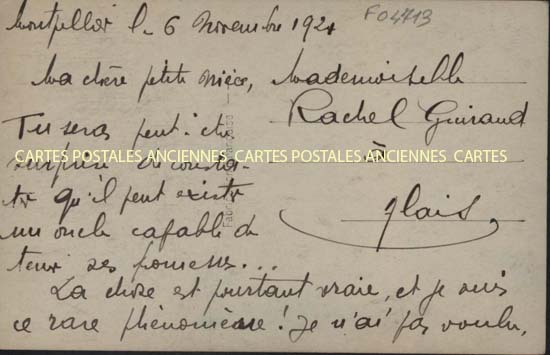 Montpellier le 6 Novembre 1921
F04713
Ma chère petite nièce,
Mademoiselle
Rachel Guiraud
à
Tu seras peut-être
surprise de consta-
ter qu'il peut exister
un oncle capable de
tenir ses promesses...
La chose est pourtant vraie, et je suis
ce rare phénomène ! Je n'ai pas voulu,
CARTES POSTALES ANCIENNES CARTES POSTALES ANCIENNES CARTES